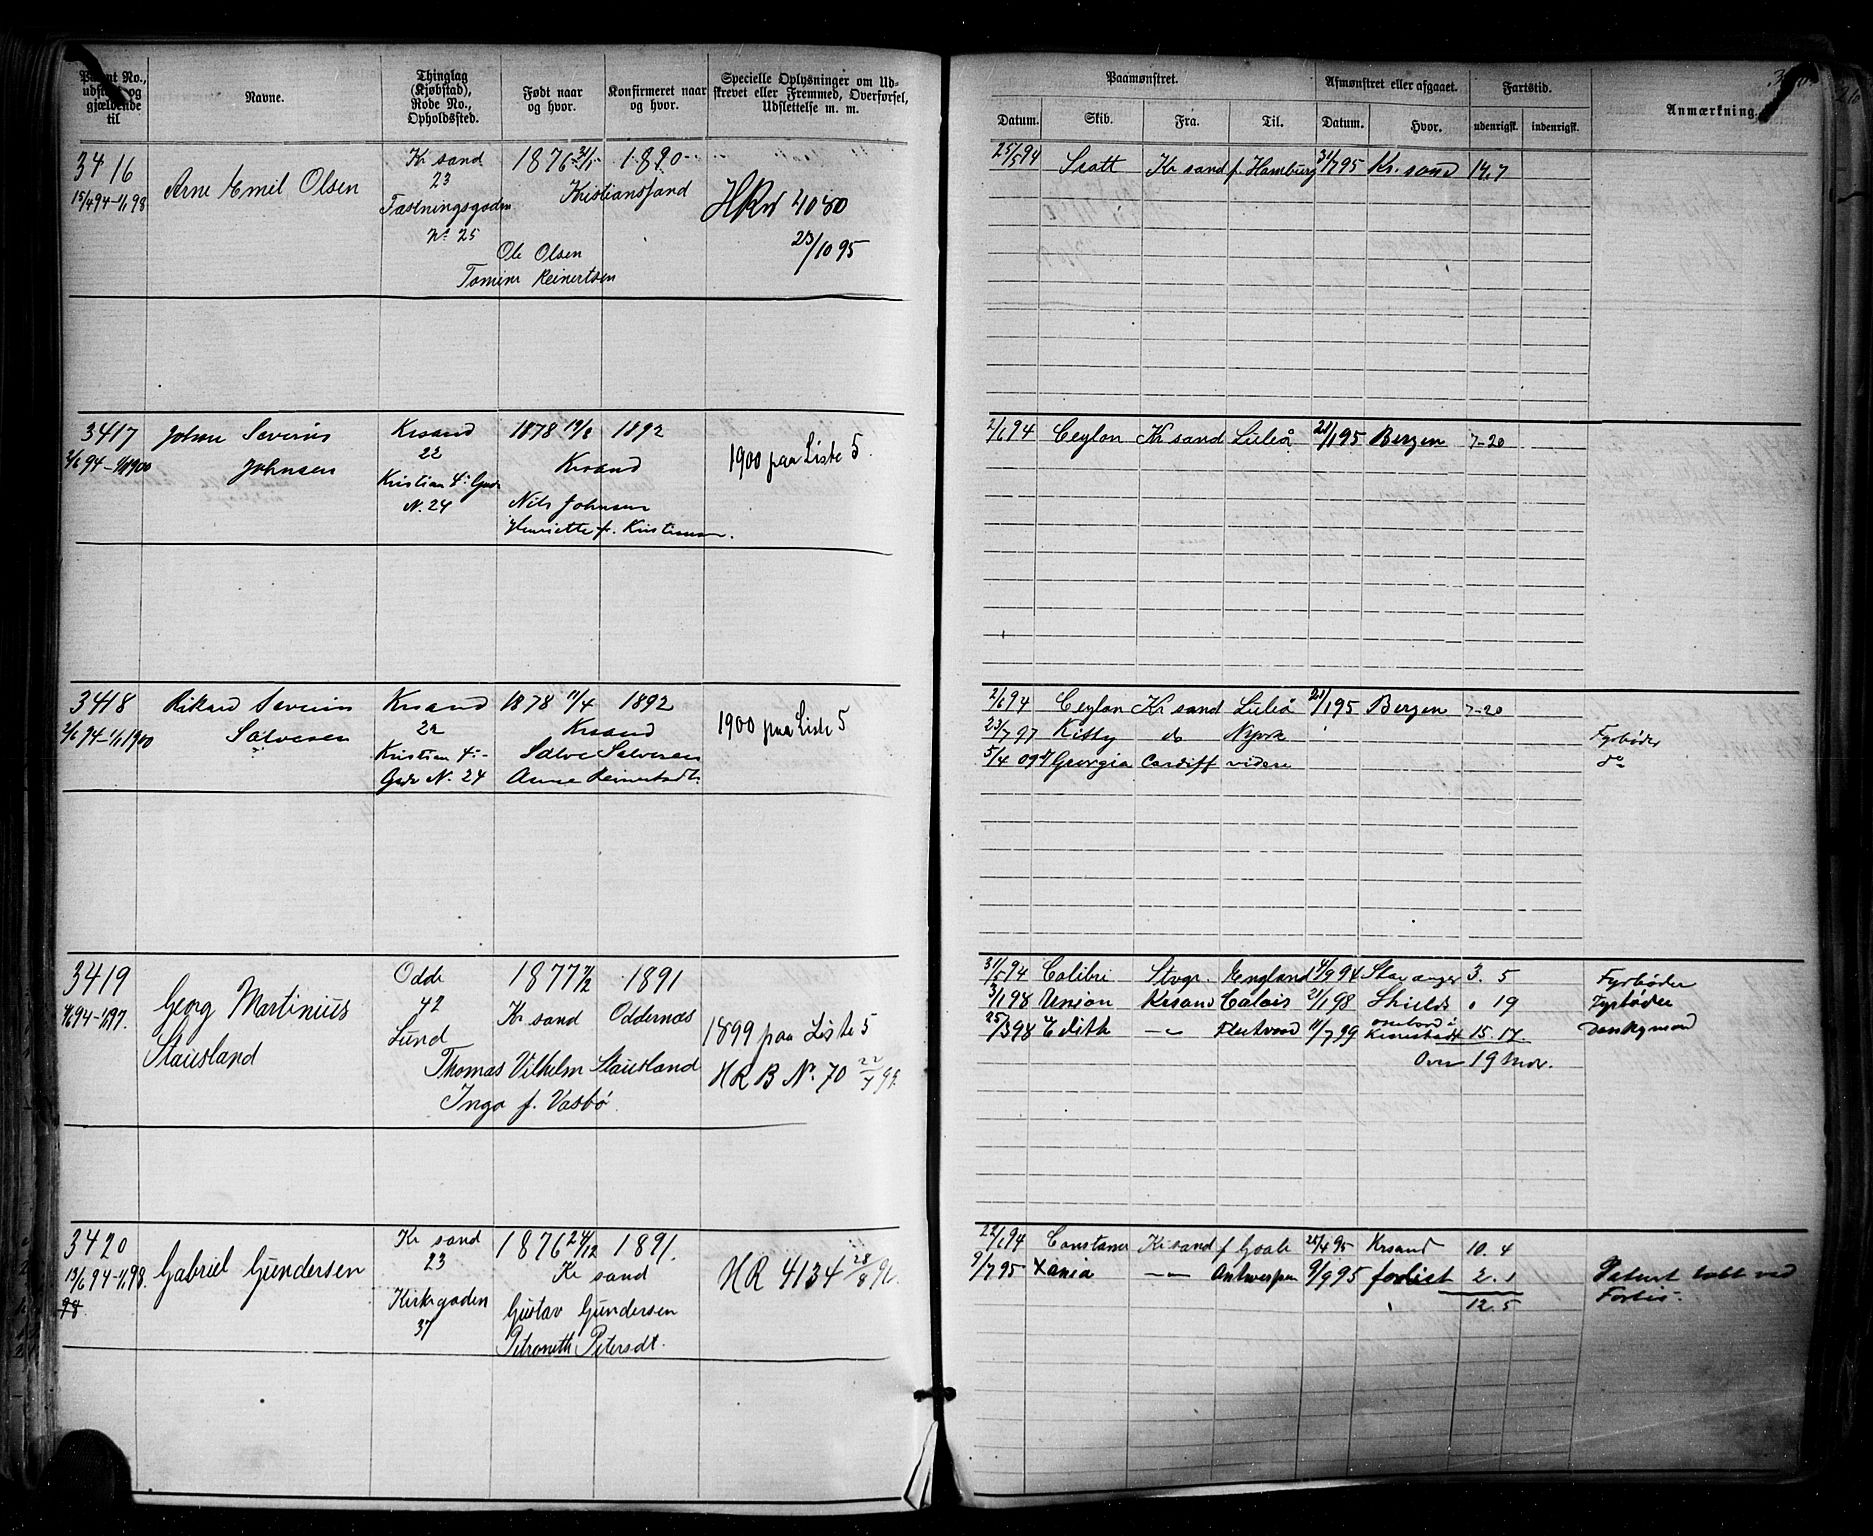 Patent No., udstedt og gjældende til
Navne.
Thinglag (Kjøbstad), Rode No., Opholdssted.
Født naar og hvor.
Konfirmeret naar og hvor.
Specielle Oplysninger om Udskrevet eller Fremmed, Overførsel, Udslettelse m. m.
Paamønstret.
Afmønstret eller afgaaet.
Fartstid.
Anmærkning.
Datum. Skib. Fra. Til. Datum. Hvor. udenrigsk. indenrigsk.
3416
15/4 94-1/1 98
Arne Emil Olsen
Kr sand
23
Fæstningsgaden
No 25
1876 31/5 1890
Kristianssand
Ole Olsen
Tomine Reinertsen
HR No 4080
23/10 95
25/5 94 Scott Kr sand f. Hamburg 31/7 95 Kr. sand 14.7
3417
2/6 94-1/1 1900
Johan Severin
Johnsen
Krsand
22
Kristian 4: Gade
N. 24
1878 19/8 1892
Krsand
Nils Johnsen
Henriette f. Kristensen.
1900 paa Liste 5.
2/6 94 Ceylon Kr sand Luleå 21/1 95 Bergen 7-20
3418
2/6 94-1/1 1900
Rikard Severin
Salvesen
Krsand
22
Kristian 4:
Gade N. 24
1878 11/4 1892
Krsand
Salve Salvesen
Anne Reinertsdt.
1900 paa Liste 5
2/6 94 Ceylon Kr sand Luleå 21/1 95 Bergen 7-20
23/7 97 Kitty do Nyork Fyrbøder
5/4 09 Georgia Cardiff videre do
3419
4/6 94-1/1 97.
Georg Martinius
Stausland
Odde
42
Lund
1877 7/2 1891
Kr sand Oddernæs
Thomas Vilhelm Stausland
Inga f. Vasbø.
1899 paa Liste 5
HR B No. 70 22/7 99.
31/5 94 Colibri Stvgr. England 4/9 94 Stavanger 3. 5 Fyrbøder
3/1 98 Union Krsand Calais 21/1 98 Shields " 19 Fyrbøder
25/3 98 Edith -"- 11/7 99 15. 17. Donkymand
Over 19 Mdr.
3420
13/6 94-1/1 98.
98
Gabriel Gundersen
Kr sand
23
Kirkegaden
37
1876 24/12 1891.
Kr sand
Gustav Gundersen
Petronette Petersdt.
HR 4134 28/8 96
22/6 94 Constance Kr sand f. Goole 25/4 95 Krsand 10. 4
9/7 95 Xania -"- Antwerpen 9/9 95 forliset 2. 1 Patent tabt ved
12. 5 Forlis.